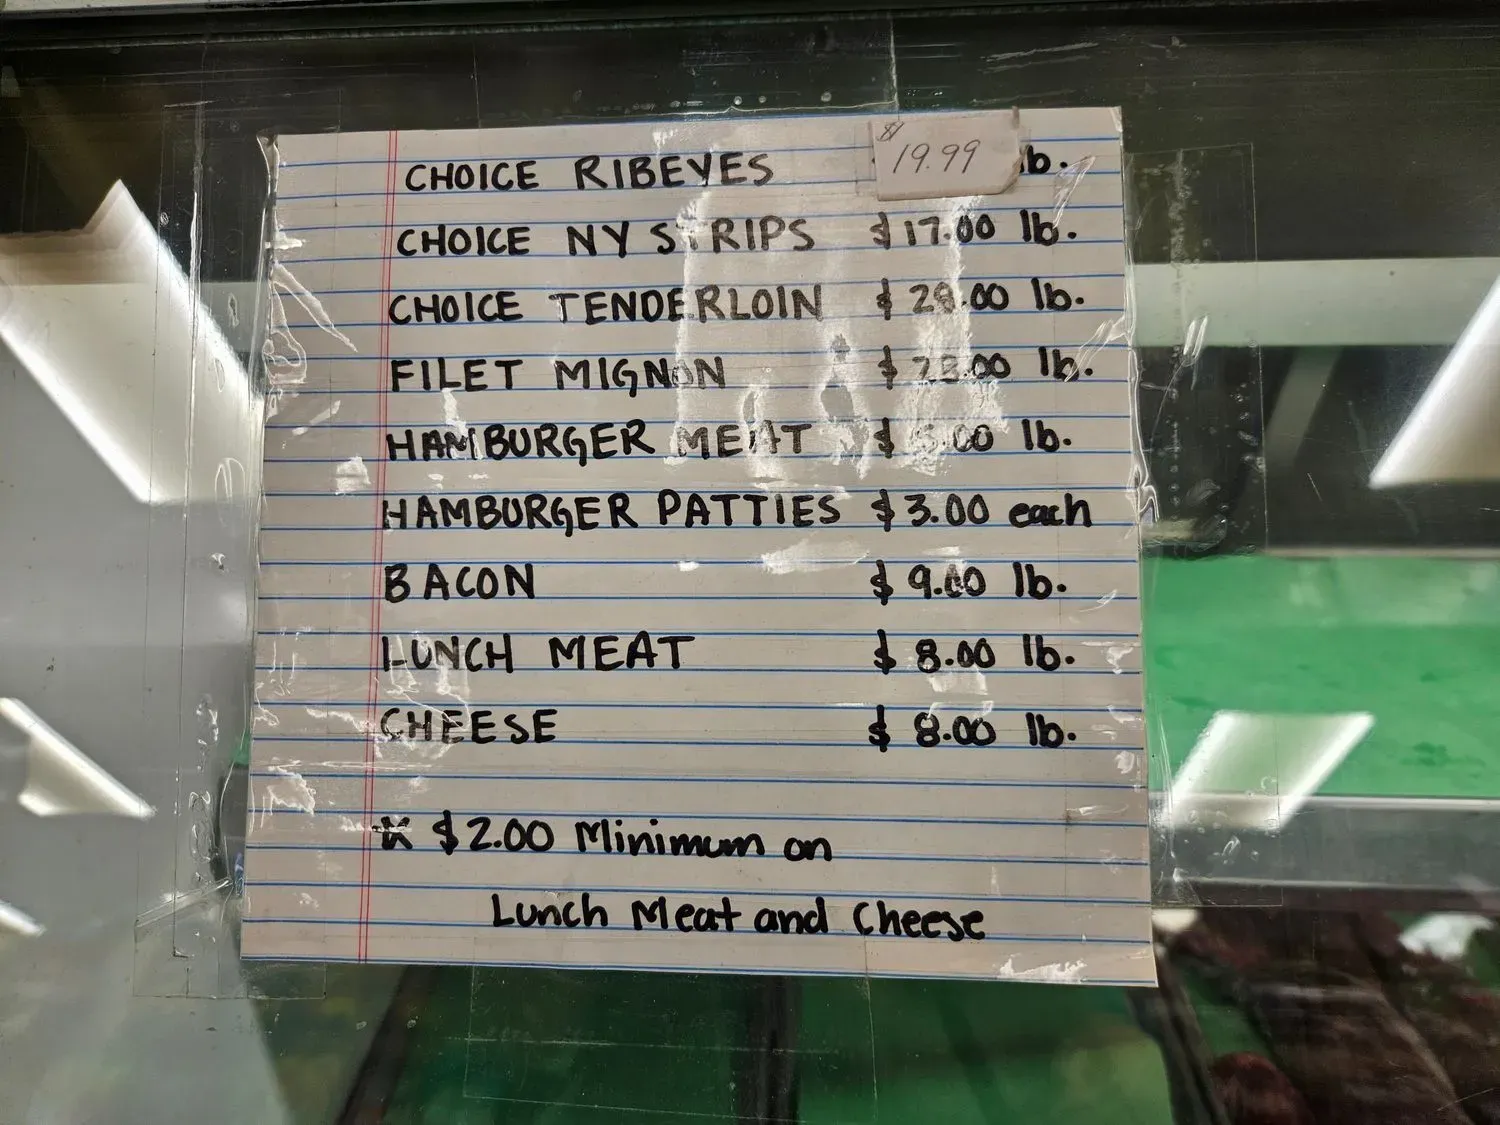 CHOICE RIBEYES $19.99 lb.
CHOICE NY STRIPS $17.00 lb.
CHOICE TENDERLOIN $28.00 lb.
FILET MIGNON $28.00 lb.
HAMBURGER MEAT lb.
HAMBURGER PATTIES $3.00 each
BACON $9.00 lb.
LUNCH MEAT $8.00 lb.
CHEESE $8.00 lb.
* $2.00 Minimum on
Lunch Meat and Cheese